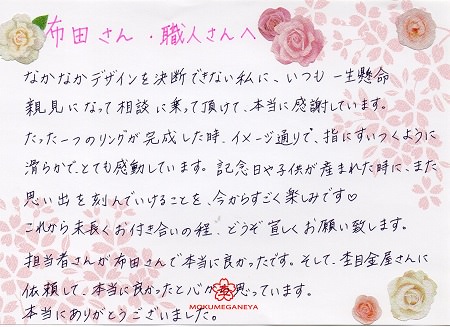 布田さん・職人さんへ
なかなかデザインを決断できない私に、いつも一生懸命
親見になって相談に乗って頂けて、本当に感謝しています。
たった一つのリングが完成した時、イメージ通りで、指にすいつくように
滑らかで、とても感動しています。記念日や子供が産まれた時に、また
思い出を刻んでいけることを、今からすごく楽しみです♡
これから末長くお付き合いの程、どうぞ宜しくお願い致します。
担当者さんが布田さんで本当に良かったです。そして、杢目金屋さんに
依頼して、本当に良かったと心から思っています。
MOKUMEGANEYA
本当にありがとうございました。